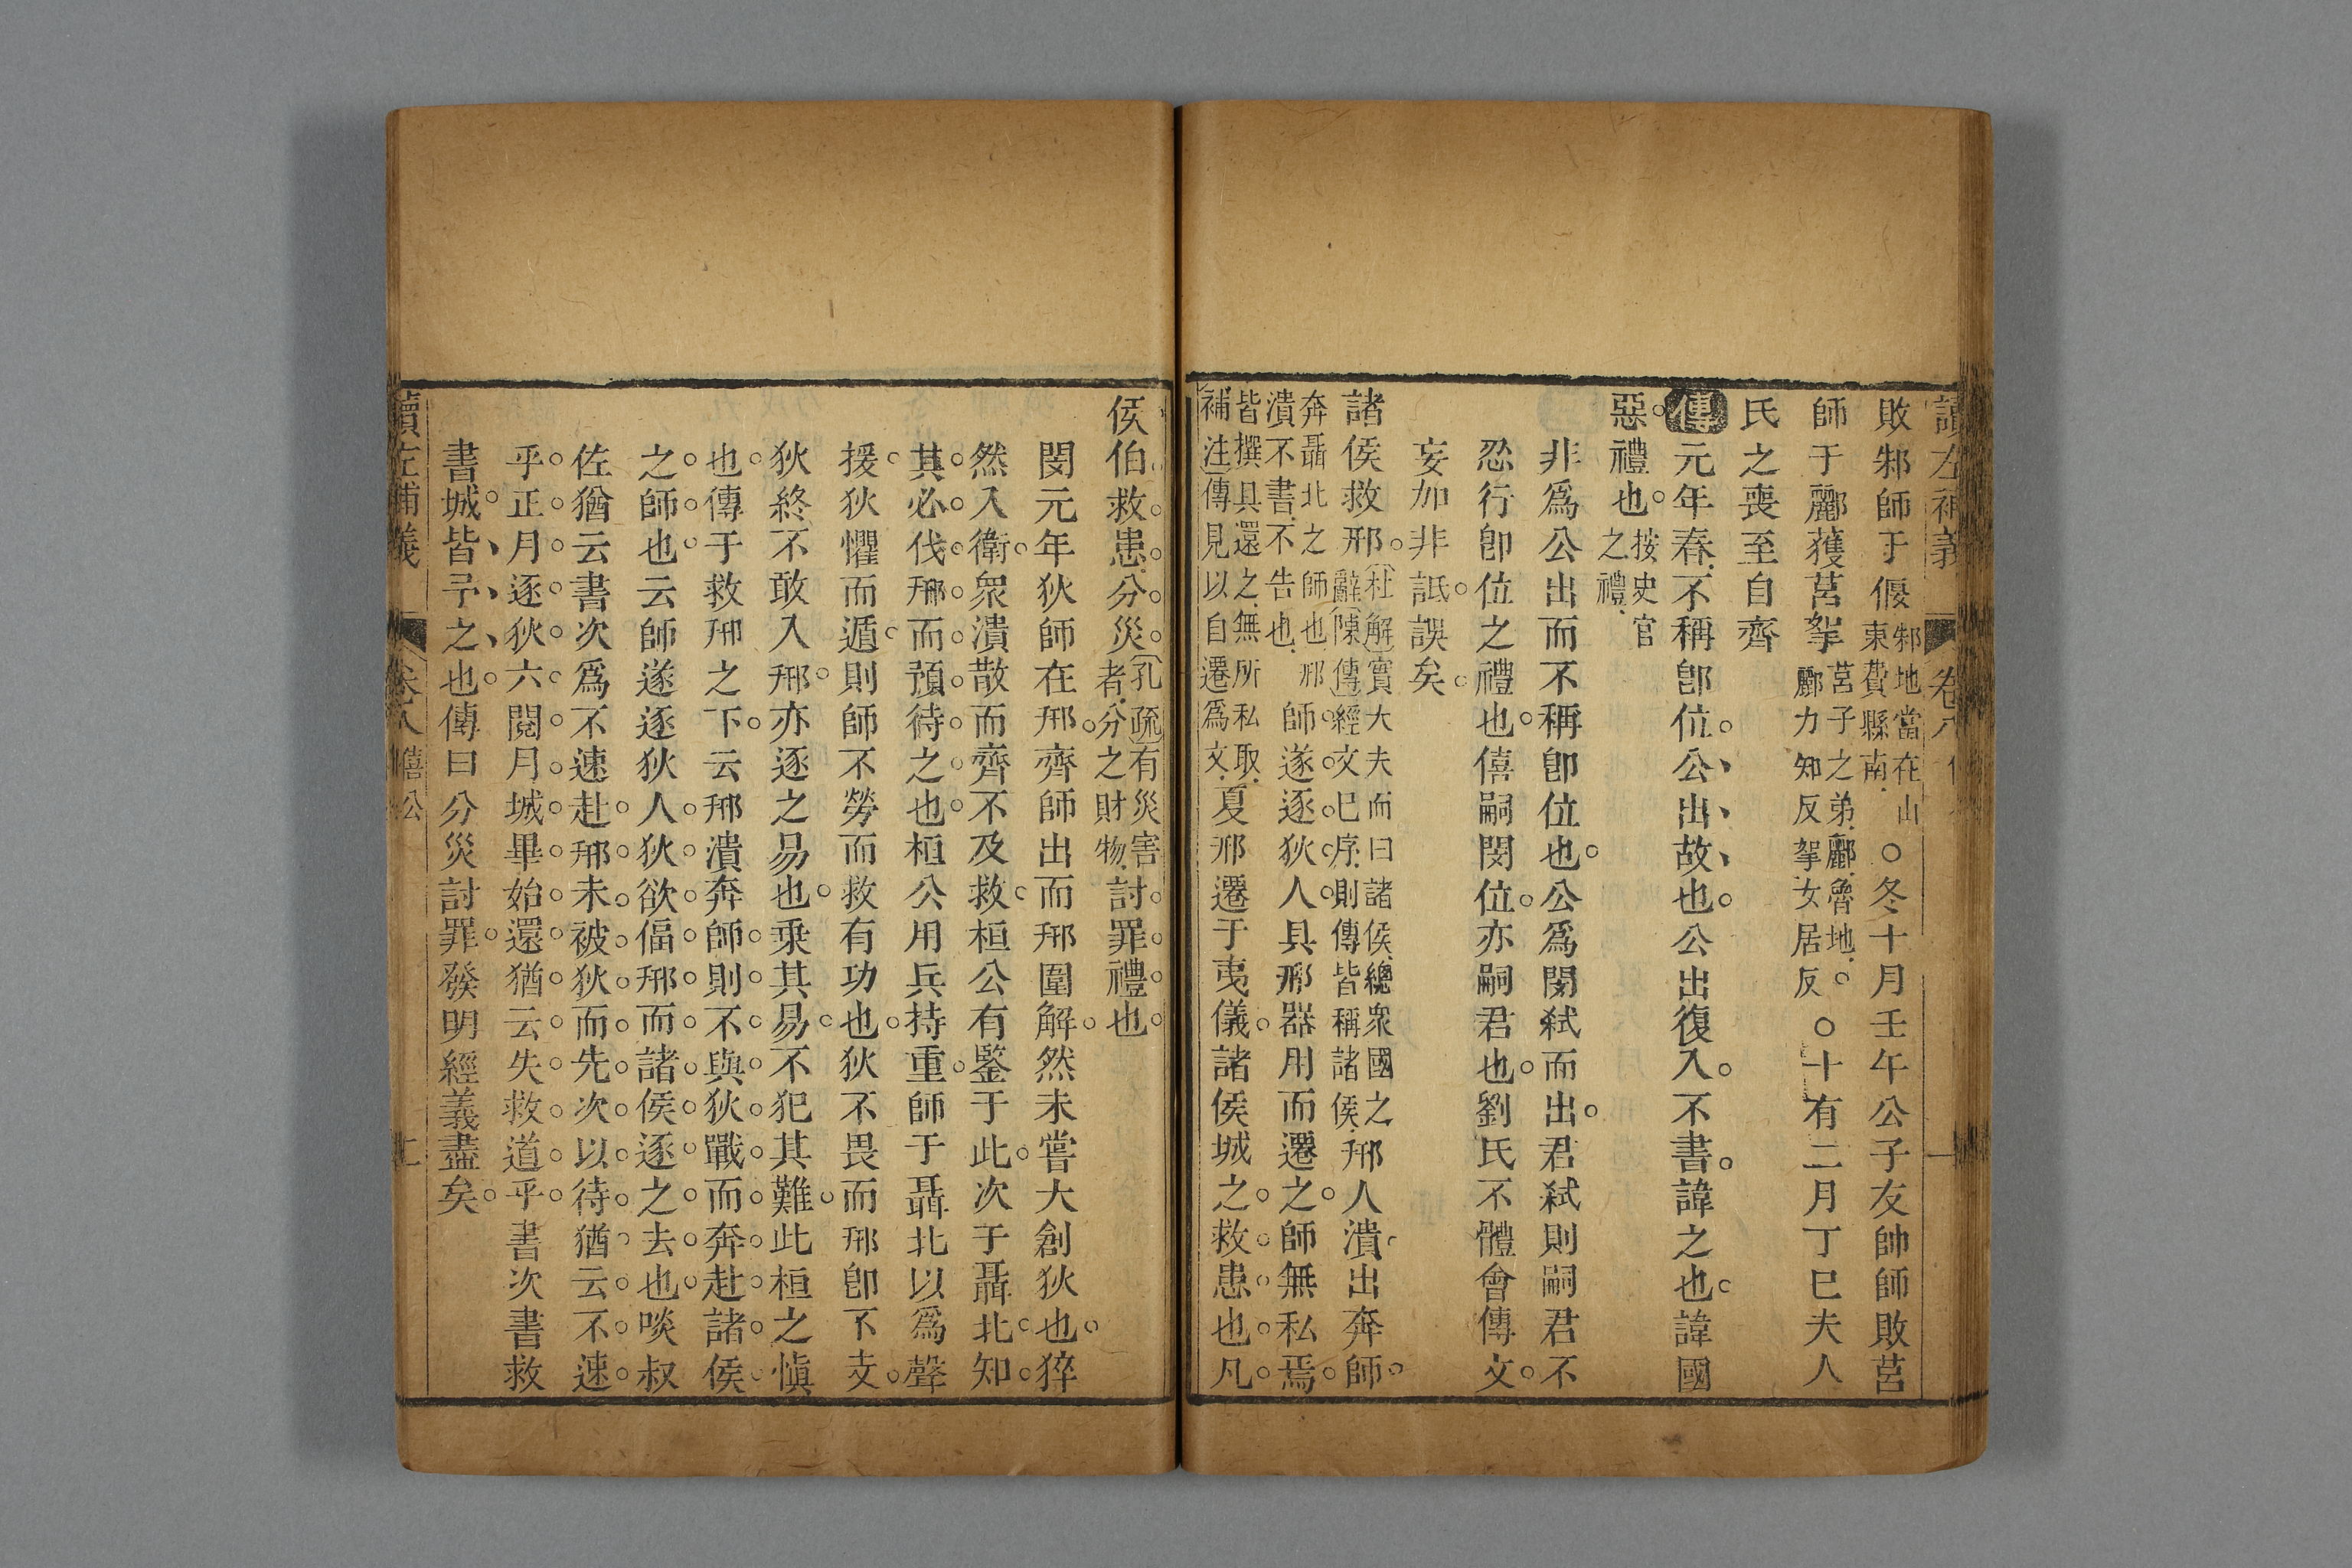 讀左補義 卷八
敗邾師于偃邾地當在山東費縣南○冬十月壬午公子友帥師敗莒
師于酈獲莒挐莒子之弟酈魯地○酈力知反挐女居反○十有二月丁巳夫人
氏之喪至自齊
傳元年春不稱卽位公出故也公出復入不書諱之也諱國
惡禮也按史官之禮
非爲公出而不稱卽位也公爲閔弒而出君弒則嗣君不
忍行卽位之禮也僖嗣閔位亦嗣君也劉氏不體會傳文
妄加非詆誤矣
諸侯救邢杜解實大夫而曰諸侯總衆國之辭陳傳經文巳序則傳皆稱諸侯邢人潰出奔師
奔聶北之師也邢潰不書不告也師遂逐狄人具邢器用而遷之師無私焉
皆撰具還之無所私取補注傳見以自遷爲文夏邢遷于夷儀諸侯城之救患也凡
侯伯救患分災孔疏有災害者分之財物討罪禮也
閔元年狄師在邢齊師出而邢圍解然未嘗大創狄也猝
然入衛衆潰散而齊不及救桓公有鑒于此次于聶北知
其必伐邢而預待之也桓公用兵持重師于聶北以爲聲
援狄懼而遁則師不勞而救有功也狄不畏而邢卽下支
狄終不敢入邢亦逐之易也乗其易不犯其難此桓之愼
也傳于救邢之下云邢潰奔師則不與狄戰而奔赴諸侯
之師也云師遂逐狄人狄欲偪邢而諸侯逐之去也啖叔
佐猶云書次爲不速赴邢未被狄而先次以待猶云不速
乎正月逐狄六閱月城畢始還猶云失救道乎書次書救
書城皆予之也傳曰分災討罪發明經義盡矣
讀左補義 卷八 僖公 上